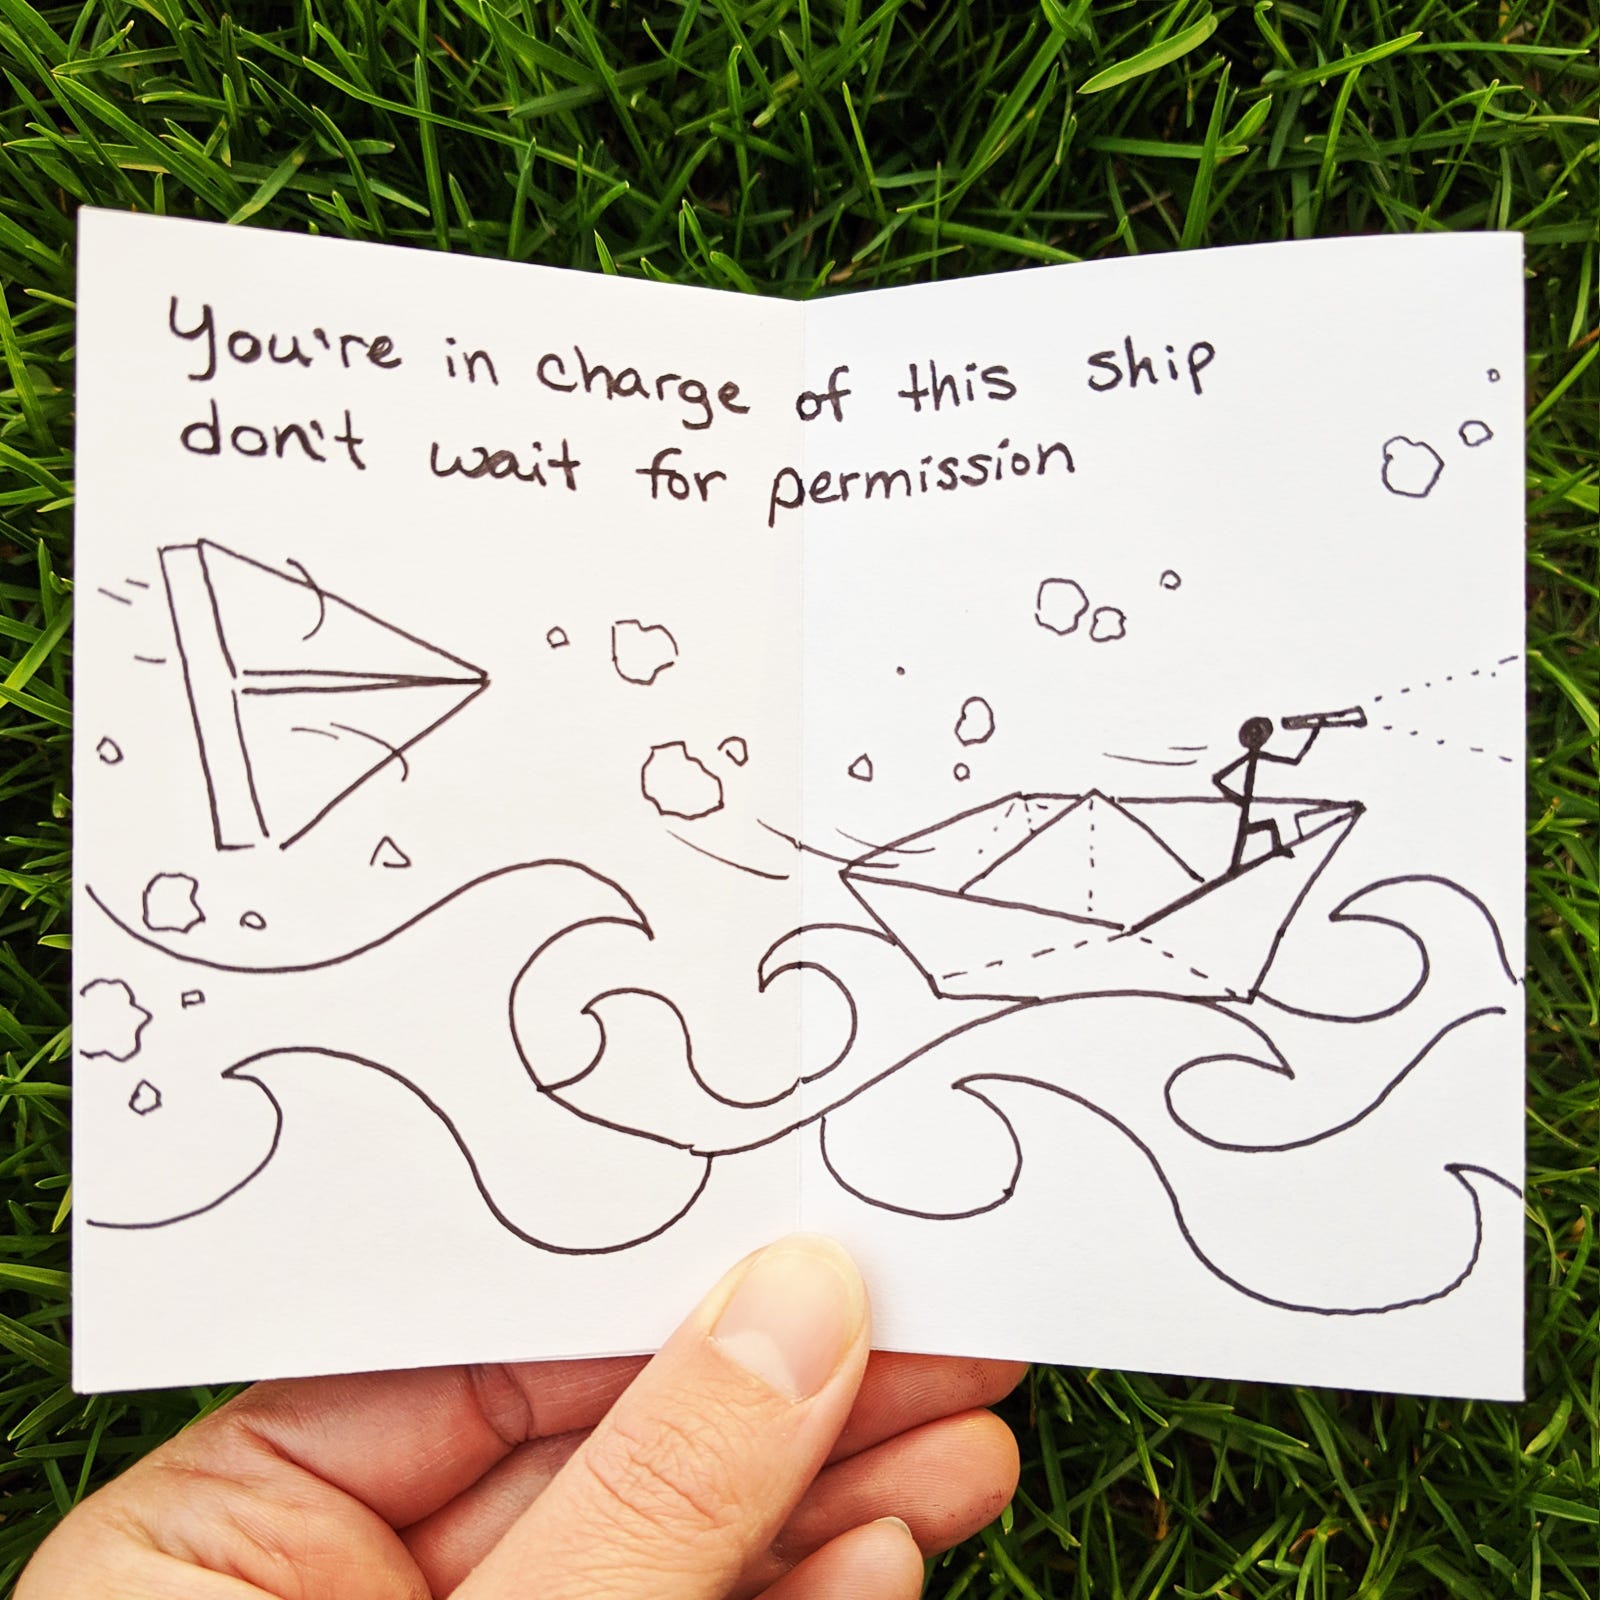 You're in charge of this ship
don't wait for permission